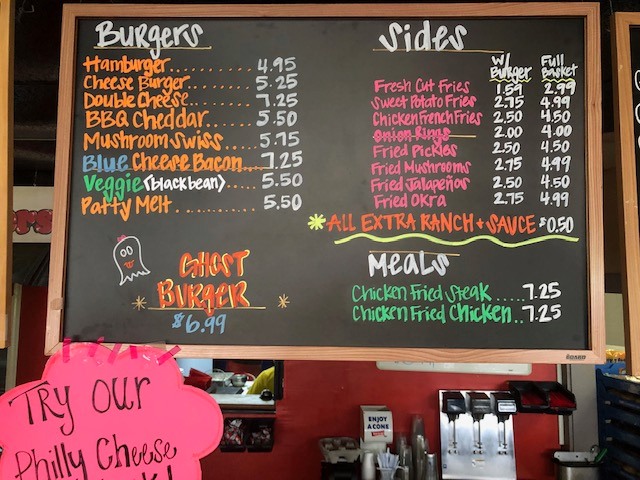 Burgers
Hamburger......... 4.95
Cheese Burger...... 5.25
Double Cheese...... 7.25
BBQ Cheddar..... 5.50
Mushroom Swiss.... 5.75
Blue Cheese Bacon... 7.25
Veggie (black bean).... 5.50
Patty Melt.......... 5.50
GHOST
BURGER
$6.99
Sides
W/ Burger Full Basket
Fresh Cut Fries 1.59 2.99
Sweet Potato Fries 2.75 4.99
Chicken French Fries 2.50 4.50
Onion Rings 2.00 4.00
Fried Pickles 2.50 4.50
Fried Mushrooms 2.75 4.99
Fried Jalapeños 2.50 4.50
Fried Okra 2.75 4.99
*ALL EXTRA RANCH + SAUCE $0.50
Meals
Chicken Fried Steak.....7.25
Chicken Fried Chicken..7.25
TRY OUR
Philly Cheese
ENJOY
A CONE